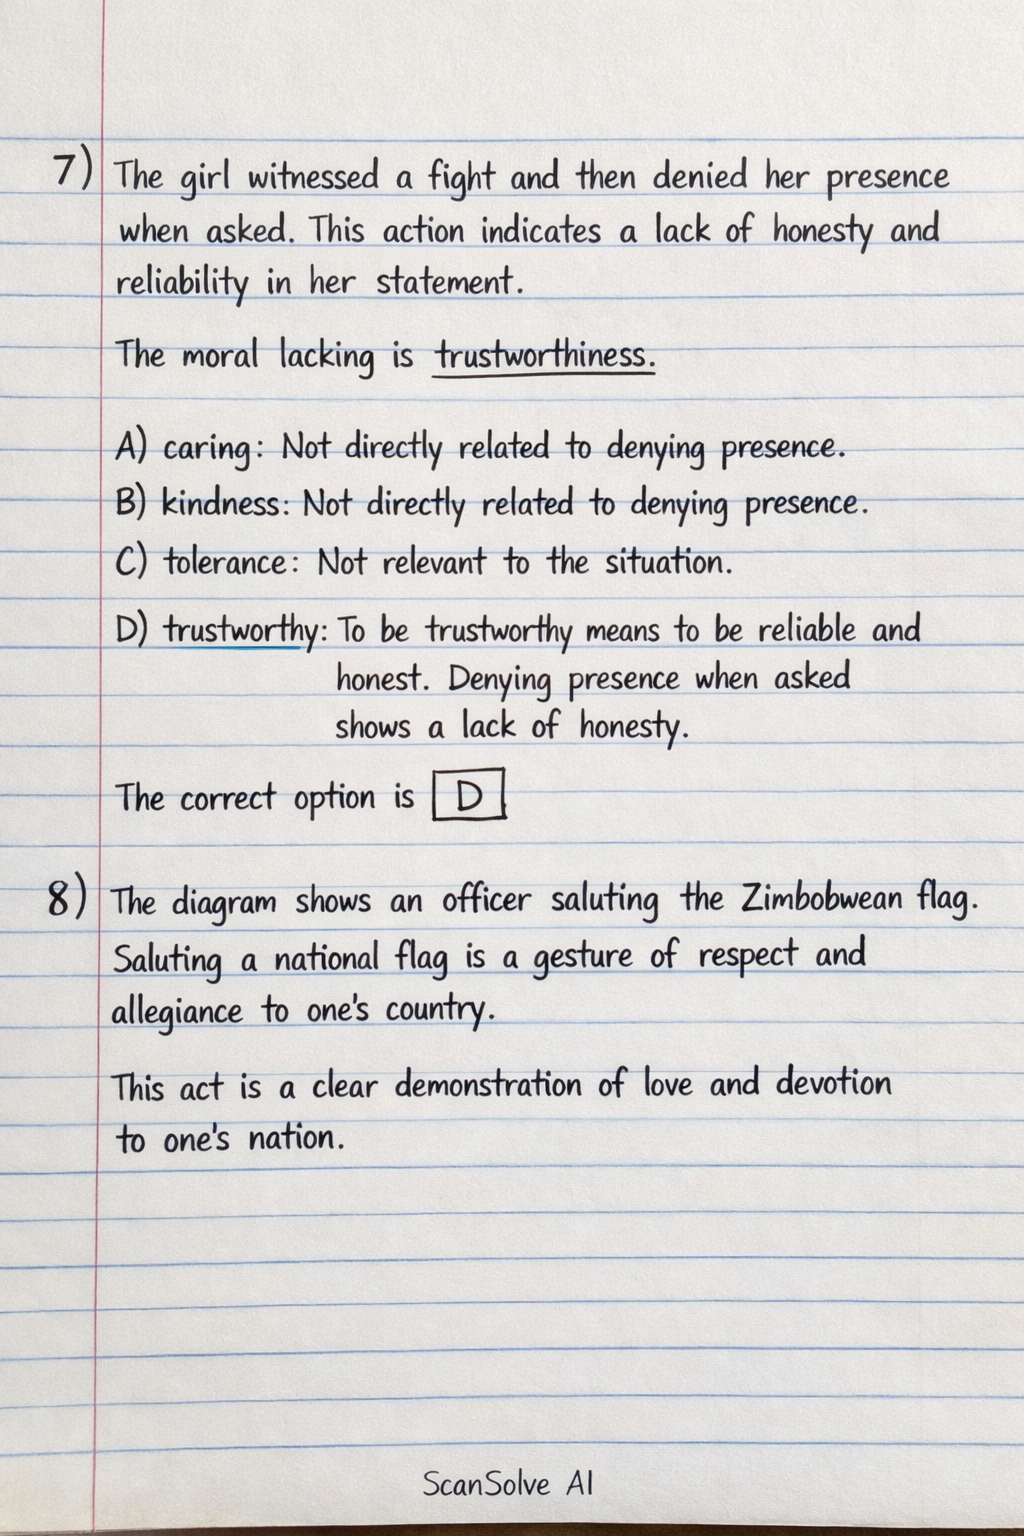 7) The girl witnessed a fight and then denied her presence
when asked. This action indicates a lack of honesty and
reliability in her statement.
The moral lacking is trustworthiness.
A) caring: Not directly related to denying presence.
B) kindness: Not directly related to denying presence.
C) tolerance: Not relevant to the situation.
D) trustworthy: To be trustworthy means to be reliable and
honest. Denying presence when asked
shows a lack of honesty.
The correct option is D
8) The diagram shows an officer saluting the Zimbobwean flag.
Saluting a national flag is a gesture of respect and
allegiance to one's country.
This act is a clear demonstration of love and devotion
to one's nation.
ScanSolve AI